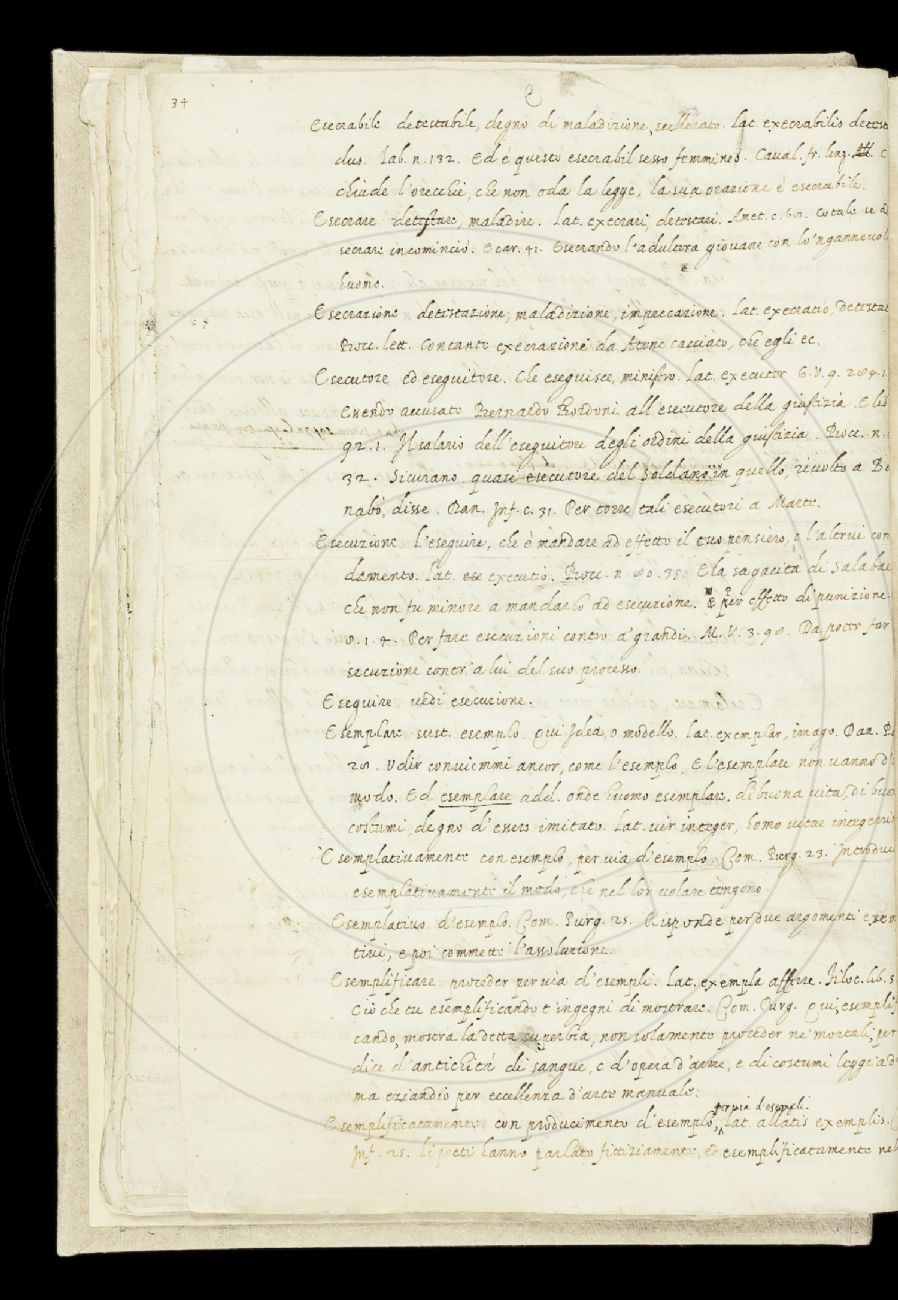 34
E
Esecrabile detestabile, degno di maladizione, scellerato. Lat. execrabilis detest
dus. Lab. n. 132. Ed è questo esecrabil sesso femmineo. Caval. fr. ling.
chiude l'orecchie, che non oda la legge, la sua orazione è esecrabile.
Esecrare detestare, maladire. Lat. execrari, detestari. Amet. c. 60. Cotale se
secrare incominciò. E car. 41. Esecrando l'adultera giovane con lo'ngannevol
huomo.
Esecrazione detestazione, maladizione, impreccazione. Lat. execratio, detesta
Bocc. lett. Con tante execrazioni da Atene cacciato, che egli ec.
Esecutore ed eseguitore. Che eseguisce, ministro. Lat. executor G. V. 9. 284. 1
Essendo accusato Bernardo Bordoni all'esecutore della giustizia. E lib
92. 1. Il salario dell'eseguitore degli ordini della giustizia. Bocc. n.
32. Sicurano quasi esecutore del Soldano in quello, rivolto a Be
nabò, disse. Dan. Inf. c. 31. Per torre tali esecutori a Marte.
Esecuzione l'eseguire, che è mandare ad effetto il tuo pensiero, o l'altrui com
damento. Lat. executio. Bocc. n. 80. 35. E la sagacità di Salabae
che non fu minore a mandarlo ad esecuzione. E per effetto di punizione.
8. 1. 4. Per fare esecuzioni contro a' grandi. M. V. 3. 98. Da poter far
secuzione contr'a lui del suo processo.
Eseguire vedi esecuzione.
Esemplare sust. esemplo. Qui Idea, o modello. Lat. exemplar, imago. Dan. Pa
28. Udir conviemmi ancor, come l'esemplo, E l'esemplare non vanno d'
modo. Ed esemplare add. onde huomo esemplare, di buona vita, di buon
costumi, degno d'essere imitato. Lat. vir integer, homo vitae integerrim
Esemplativamente con esemplo, per via d'esemplo. Com. Purg. 23. Introduce
esemplativamente il modo, che nel lor volare tengono.
Esemplativo d'esemplo. Com. Purg. 25. Risponde per due argomenti exem
tivi, e poi commette l'assoluzione.
Esemplificare proceder per via d'esempli. Lat. exempla afferre. Filoc. lib. 5
Ciò che tu esemplificando t'ingegni di mostrare. Com. Purg. Qui, esemplif
cando, mostra la detta superbia, non solamente proceder ne' mortali, per
dice d'antichità di sangue, e d'opera d'arme, e di costumi leggiad
ma eziandio per eccellenza d'arte manuale.
per via d'esempli.
Esemplificatamente con producimento d'esemplo, Lat. allatis exemplis.
Inf. 25. Li poeti hanno parlato fittiziamente, ed esemplificatamente nel